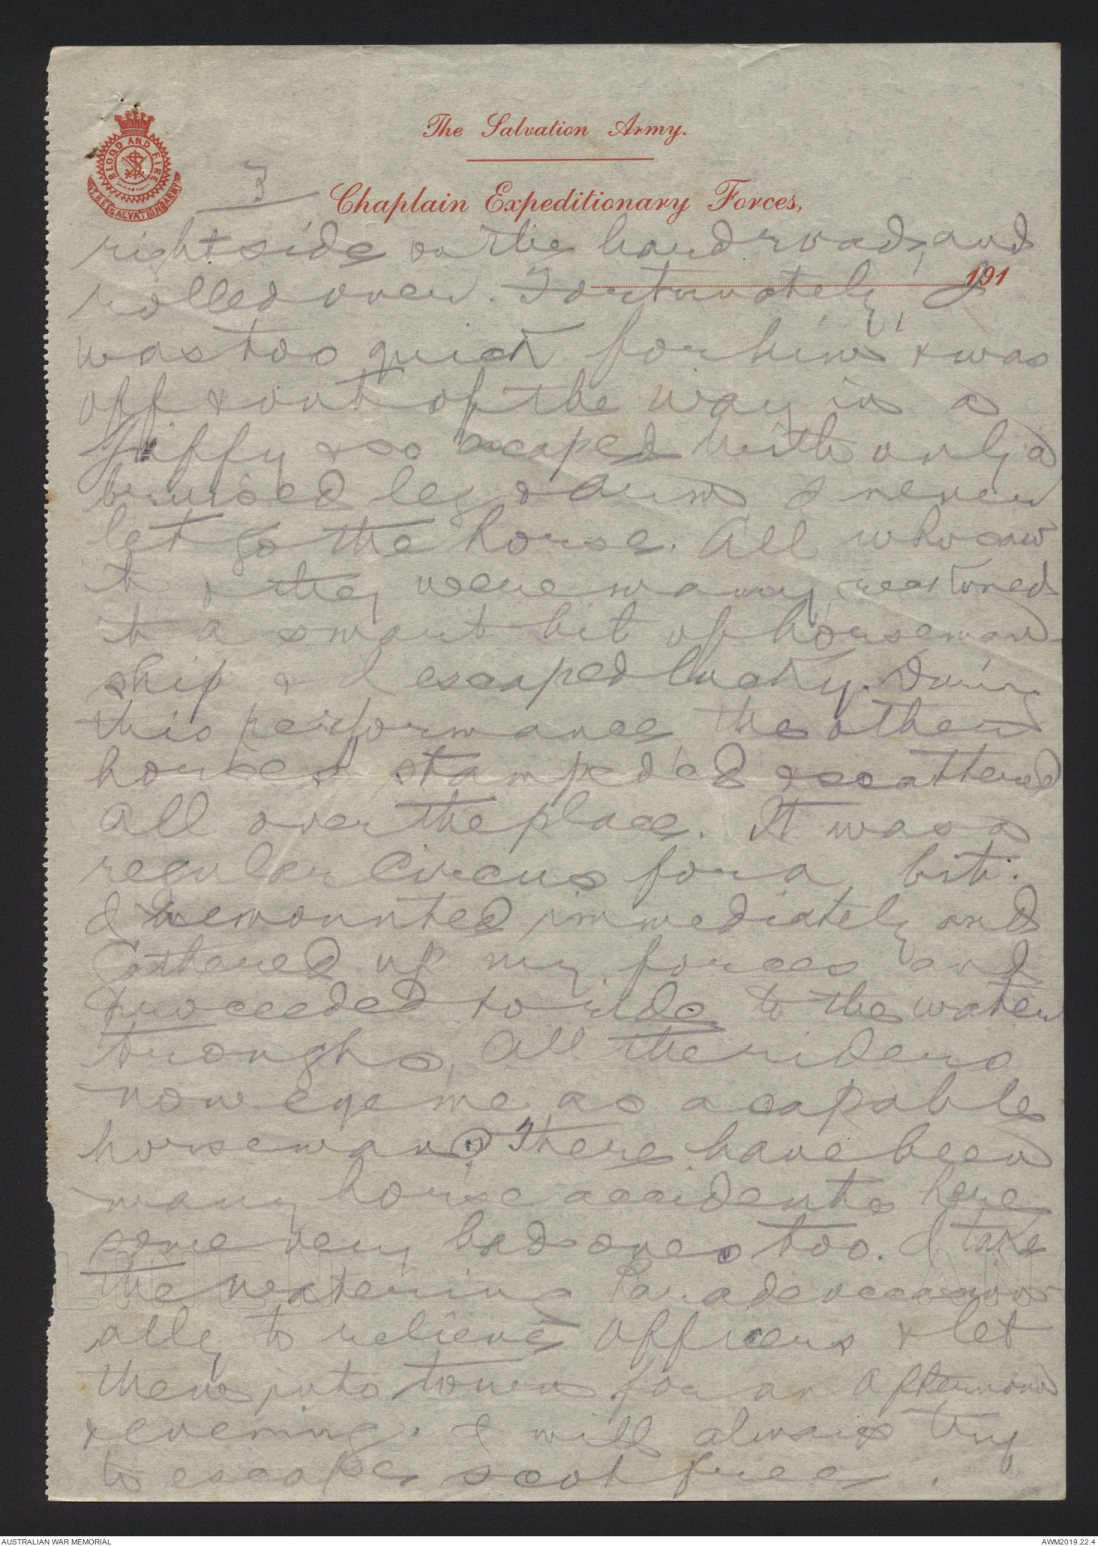 The Salvation Army.
BLOOD AND FIRE
THE SALVATION ARMY
3
Chaplain Expeditionary Forces,
191
right side on the hard road, and
rolled over. Fortunately, I
was too quick for him & was
off & out of the way in a
Jiffy & so escaped with only a
bruised leg & arm I never
let go the horse. All who saw
it & they were many
it a smart bit of horseman-
ship & I escaped lucky. During
this performance the other
horses stampeded & scattered
all over the place. It was a
regular Circus for a bit.
I remounted immediately and
Gathered up my forces and
proceeded to ride to the water
troughs, All the riders
now eye me as a capable
horseman. There have been
many horse accidents here
some very bad ones too. I take
the watering Parade occasion-
ally to relieve Officers & let
them into town for an afternoon
& evening. I will always try
to escape scot free.
AUSTRALIAN WAR MEMORIAL
AWM2019.22.4